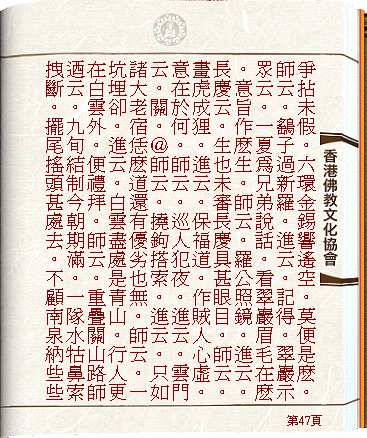 爭拈未假。六環金錫響遙空。莫便是麽。
師云。鷂子過新羅。進云。記得。翠巖示
眾云。一夏為兄弟說話。看翠巖眉毛在麽
。意旨作麽生。師云。羅公照鏡。進云。
長慶云。生也未審長慶具甚眼目。師云。
畫虎成狸。進云。保福道。作賊人心虛。
意在於何。師云。巡人犯夜。進云。雲門
云。關。@師云。撓鉤搭索。進云。只如
諸大老宿恁麽道還有優劣也無。師云。一
坑埋卻。進云。白雲盡處是青山。行人更
在白雲外。便禮拜。師云。重疊關山路師
迺云。九旬結制今朝期滿。一隊水牯鼻索
拽斷。擺尾搖頭甚處去。不顧南泉納些些
香港佛教文化協會
第47頁